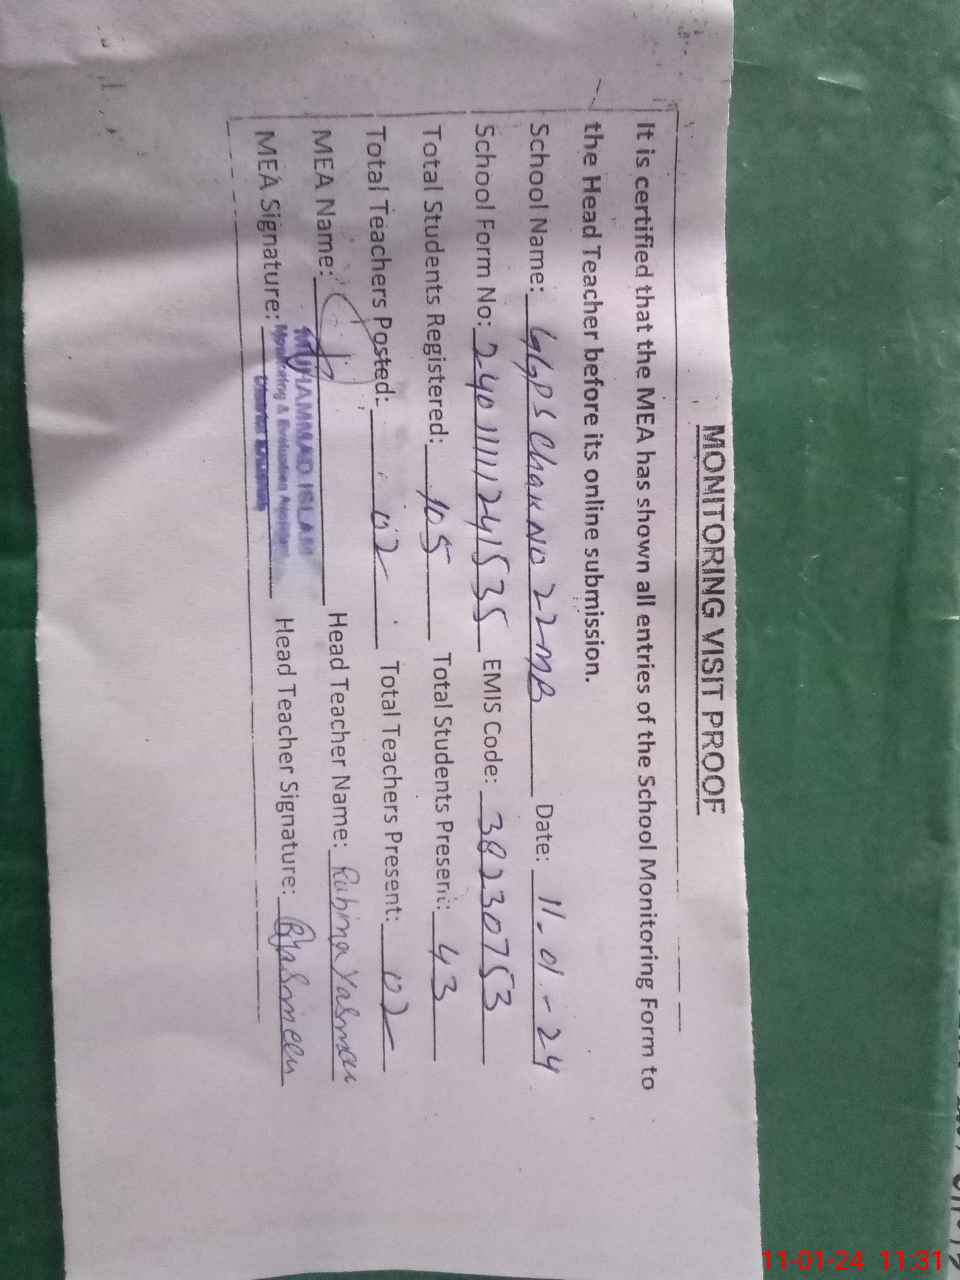 MONITORING VISIT PROOF
It is certified that the MEA has shown all entries of the School Monitoring Form to
the Head Teacher before its online submission.
School Name: GGPS Chak No 22-MB Date: 11-01-24
School Form No: EMIS Code: 38230753
Total Students Registered: 105 Total Students Present: 43
Total Teachers Posted: 02 Total Teachers Present: 02
MEA Name: Head Teacher Name: Rubina Yasmeen
MUHAMMAD ISLAM
Monitoring & Evaluation Assistant
MEA Signature: Head Teacher Signature: RYasmeen
11-01-24 11:31